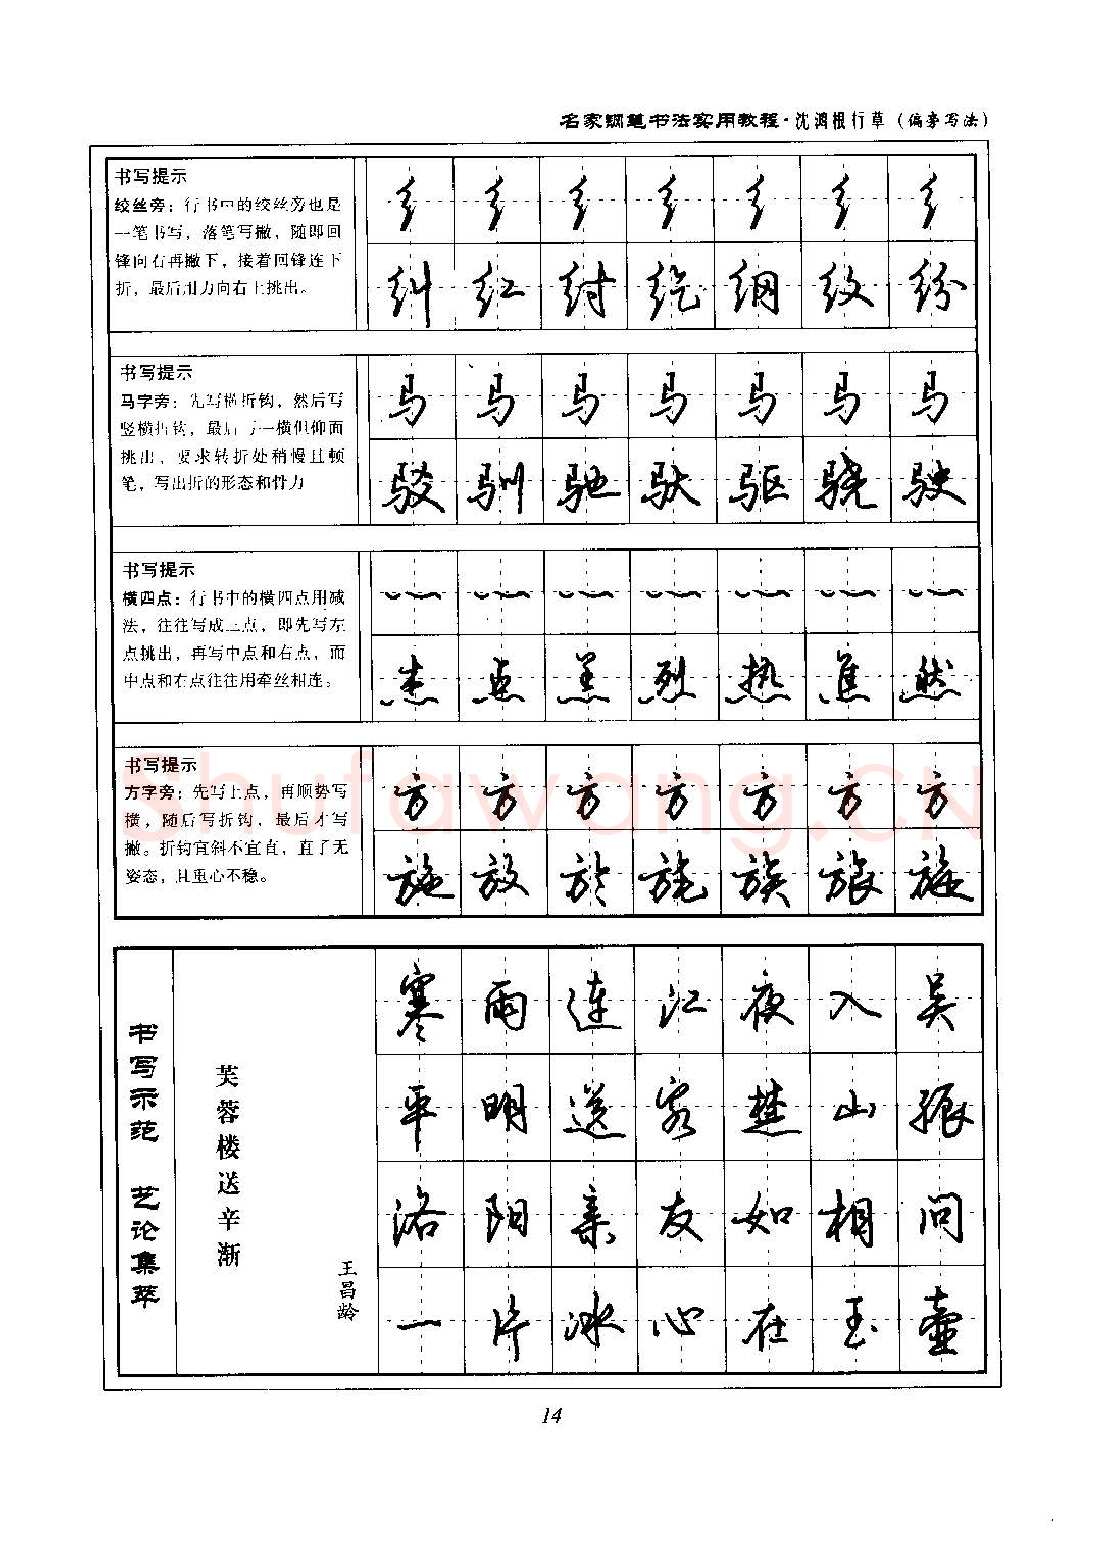 名家钢笔书法实用教程·沈鸿根行草(偏旁写法)
书写提示
绞丝旁：行书中的绞丝旁也是
一笔书写，落笔写撇，随即回
锋向右再撇下，接着回锋连下
折，最后用力向右上挑出。
纟 纟 纟 纟 纟 纟 纟
纠 红 纣 纥 纲 纹 纷
书写提示
马字旁：先写横折钩，然后写
竖横折钩，最后写一横但仰面
挑出，要求转折处稍慢且顿
笔，写出折的形态和骨力
马 马 马 马 马 马 马
驳 驯 驰 驮 驱 骁 驶
书写提示
横四点：行书中的横四点用减
法，往往写成三点，即先写左
点挑出，再写中点和右点，而
中点和右点往往用牵丝相连。
灬 灬 灬 灬 灬 灬 灬
杰 点 羔 烈 热 焦 然
书写提示
方字旁：先写上点，再顺势写
横，随后写折钩，最后才写
撇。折钩宜斜不宜直，直了无
姿态，且重心不稳。
方 方 方 方 方 方 方
施 放 於 旄 族 旅 旋
Shufawang.CN
书写示范 艺论集萃
芙蓉楼送辛渐
王昌龄
寒雨连江夜入吴
平明送客楚山孤
洛阳亲友如相问
一片冰心在玉壶
14